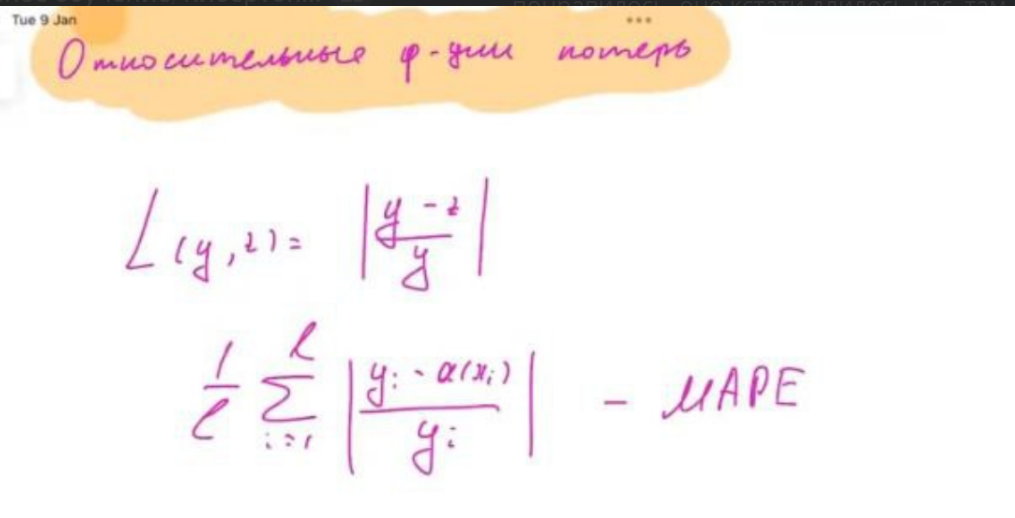 Tue 9 Jan
Относительные ф-ции потерь
L(y, z) = |(y - z)/y|
1/ℓ ∑_{i=1}^{ℓ} |(y_i - a(x_i))/y_i| - MAPE